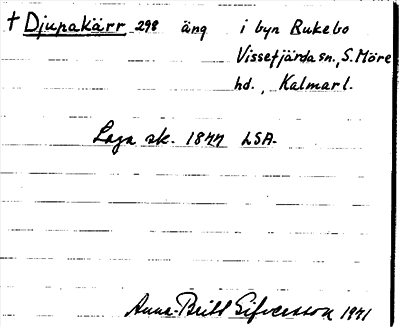 † Djupakärr 298 äng i byn Bukebo
Vissefjärda sn., S. Möre
hd., Kalmar l.
Laga sk. 1844 LSA.
Anna-Britt Sifversson 1941